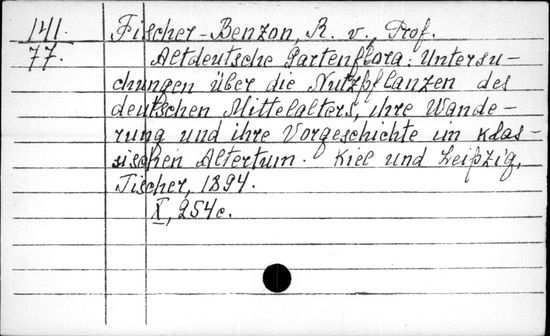 141. Fischer-Benzon, R. v., Prof.
77. Altdeutsche Gartenflora: Untersu-
chungen über die Nutzpflanzen des
deutschen Mittelalters, ihre Wande-
rung und ihre Vorgeschichte im klas-
sischen Altertum. Kiel und Leipzig,
Tischer, 1894.
X, 254c.